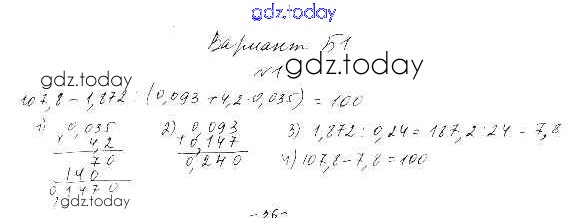 gdz.today
Вариант Б1
№1 gdz.today
gdz.today
107,8 - 1,872 : (0,093 + 4,2 · 0,035) = 100
1) 0,035 2) 0,093 3) 1,872 : 0,24 = 187,2 : 24 = 7,8
× 4,2 + 0,147 4) 107,8 - 7,8 = 100
70 0,240
140
0,1470
gdz.today